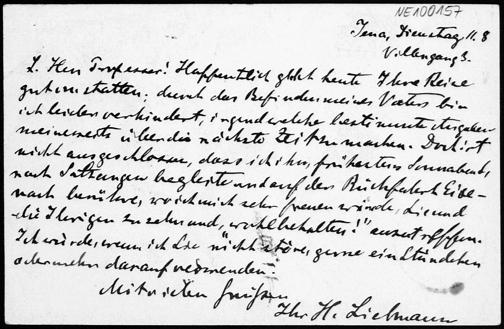 NE100157
Jena, Dienstag 11.8
Villengang 3.
L. Herr Professor! Hoffentlich geht heute Ihre Reise
gut vonstatten; durch das Befinden meines Vaters bin
ich leider verhindert, irgendwelche bestimmte Angaben
meinerseits über die nächste Zeit zu machen. Doch ist
nicht ausgeschlossen, dass ich ihn, frühestens Sonnabend,
nach Saltungen begleite und auf der Rückfahrt Eise-
nach berühre, wo ich mich sehr freuen würde, Sie und
die Ihrigen zu sehn und, "wohlbehalten!" anzutreffen.
Ich würde, wenn ich Sie nicht störe, gerne ein Stündchen
oder mehr darauf verwenden.
Mit vielen Grüßen
Ihr H. Liebmann